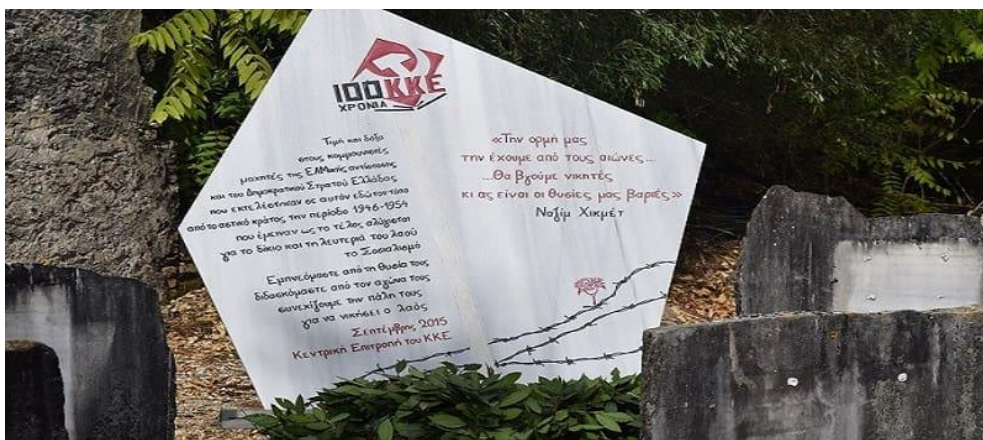 100 ΚΚΕ
ΧΡΟΝΙΑ
Τιμή και δόξα
στους κομμουνιστές
μαχητές της ΕΑΜικής αντίστασης
και του Δημοκρατικού Στρατού Ελλάδας
που εκτελέστηκαν σε αυτόν εδώ τον τόπο
από το αστικό κράτος την περίοδο 1946-1954
που έμειναν ως το τέλος αλύγιστοι
για το δίκιο και τη λευτεριά του λαού
το Σοσιαλισμό
Εμπνεόμαστε από τη θυσία τους
διδασκόμαστε από τον αγώνα τους
συνεχίζουμε την πάλη τους
για να νικήσει ο λαός
Σεπτέμβρης 2015
Κεντρική Επιτροπή του ΚΚΕ
«Την ορμή μας
την έχουμε από τους αιώνες...
...Θα βγούμε νικητές
κι ας είναι οι θυσίες μας βαριές»
Ναζίμ Χικμέτ